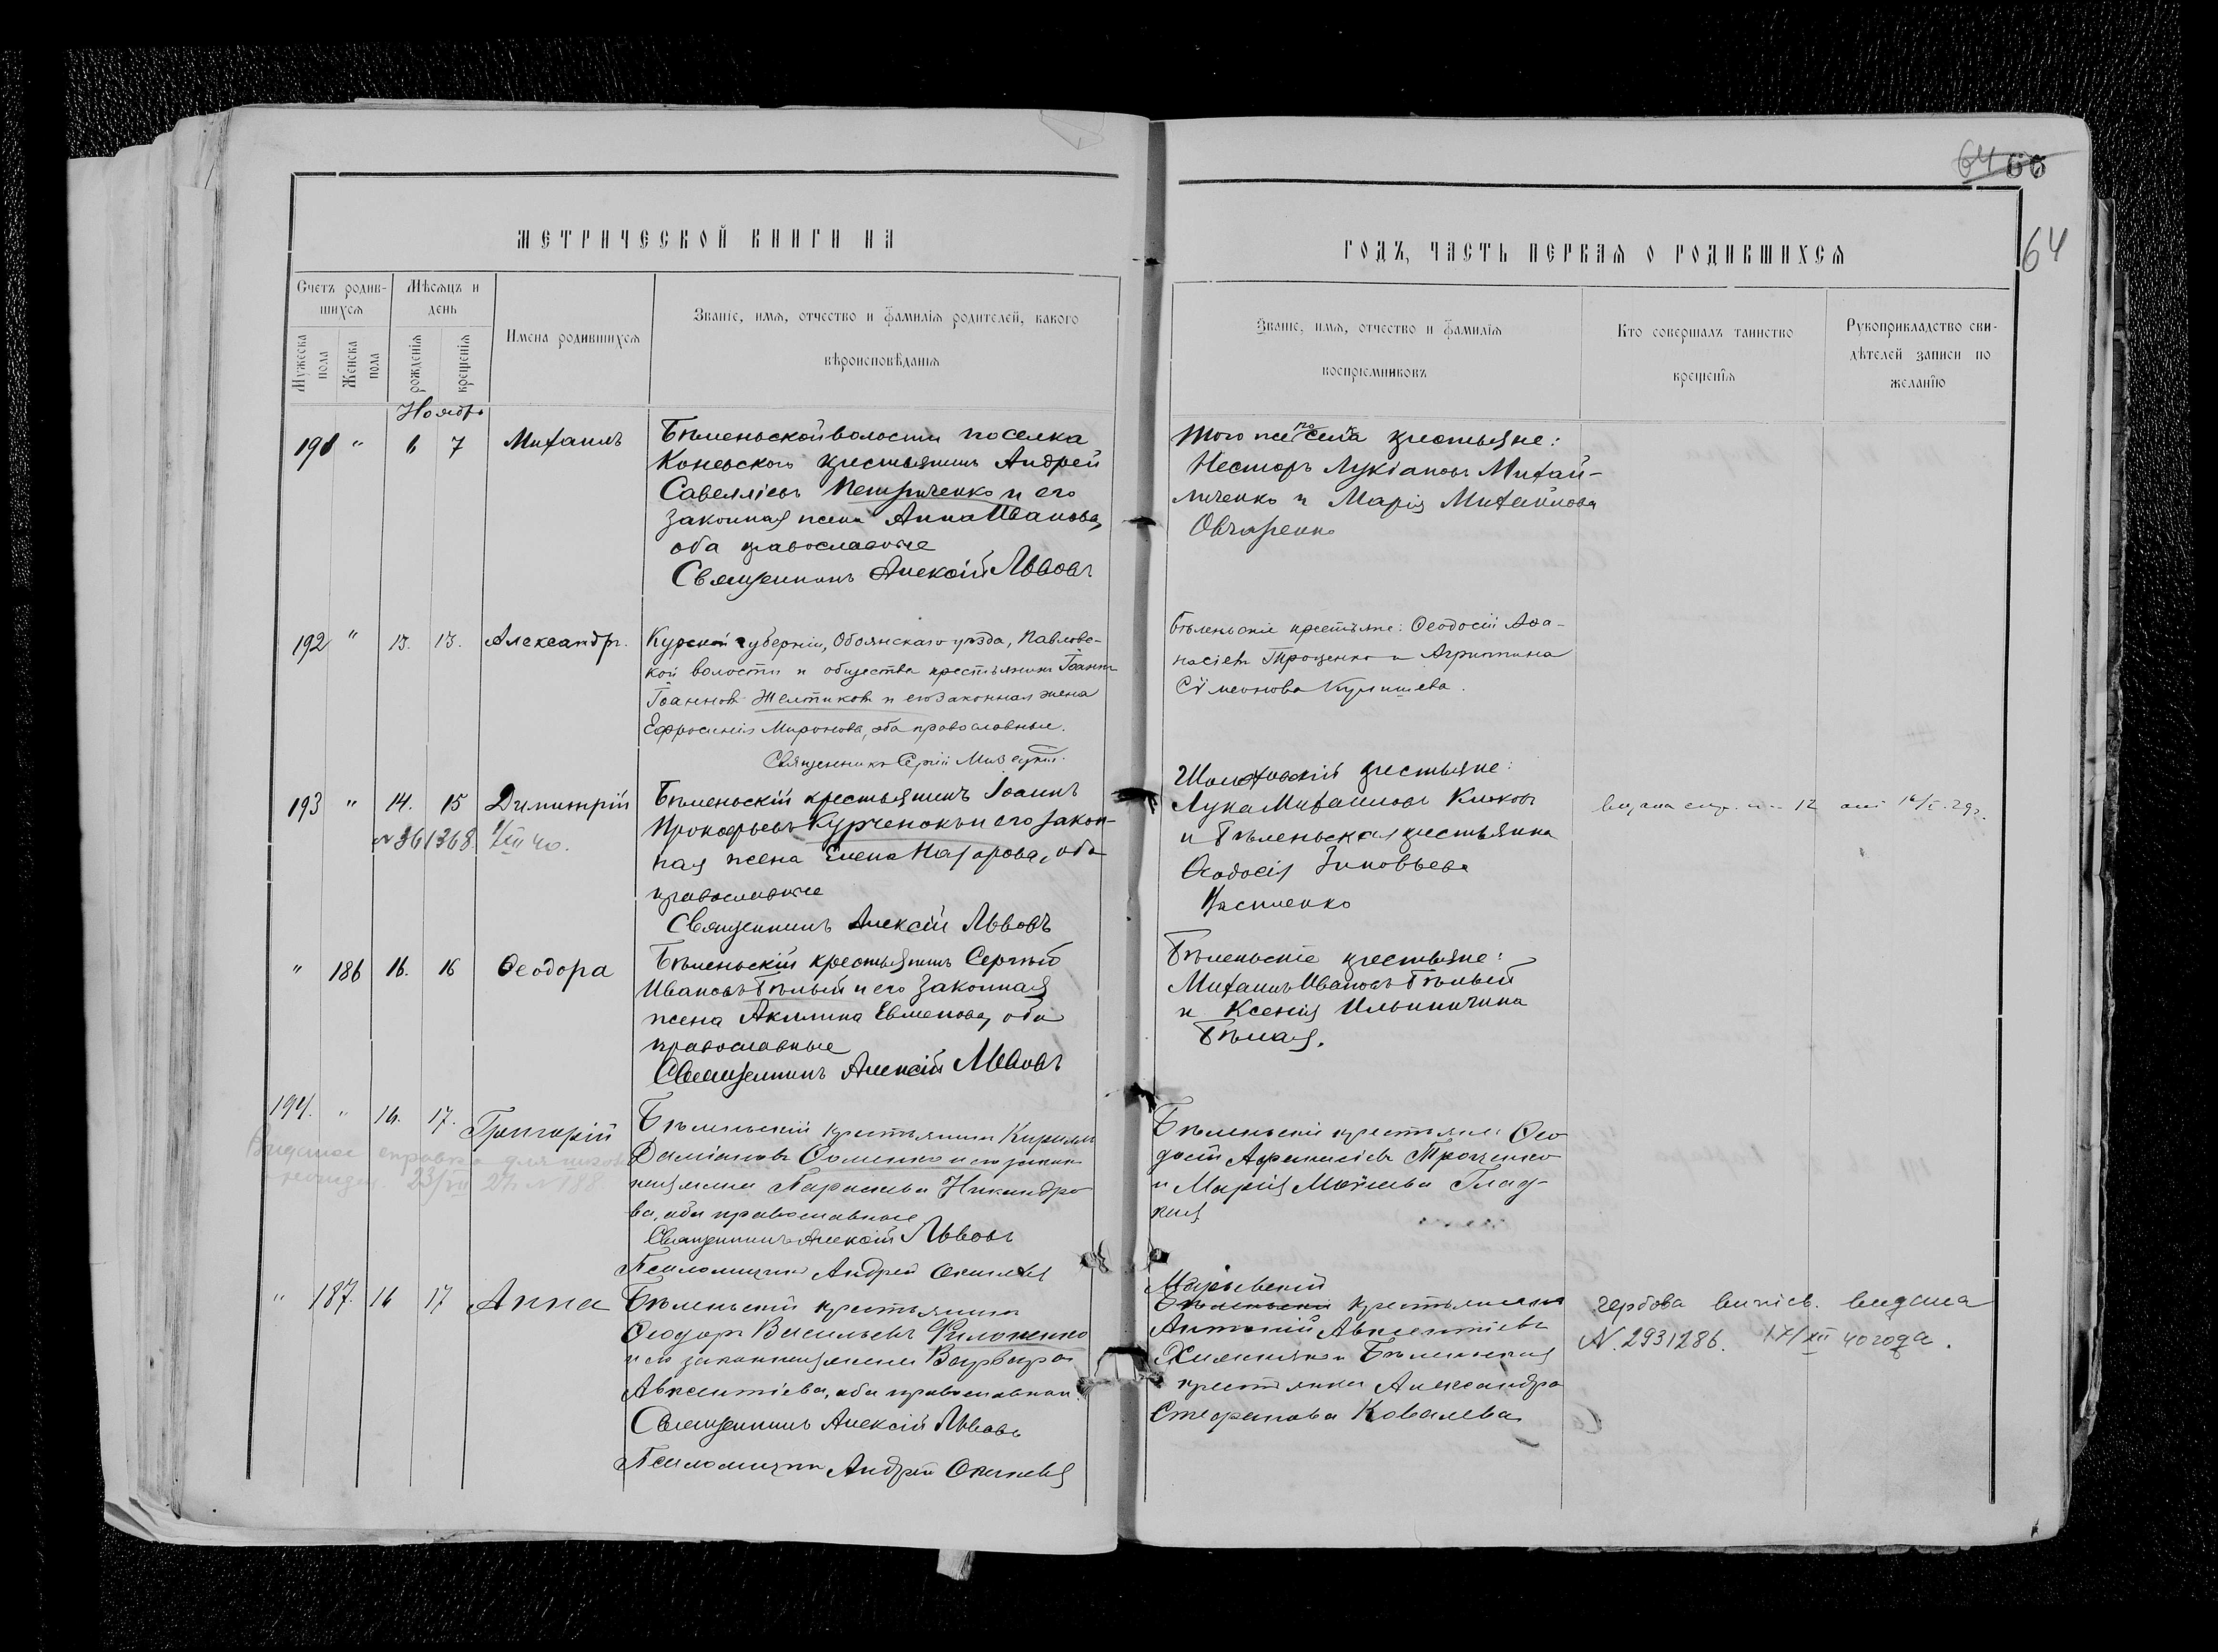 64 66
64
МЕТРИЧЕСКОЙ КНИГИ НА
ГОДЪ, ЧАСТЬ ПЕРВАЯ О РОДИВШИХСЯ
Счетъ родив-
шихся
Мужеска
пола
Женска
пола
Мѣсяцъ и
день
рожденія
крещенія
Имена родившихся
Званіе, имя, отчество и фамилія родителей, какого
вѣроисповѣданія
Званіе, имя, отчество и фамилія
воспріемниковъ
Кто совершалъ таинство
крещенія
Рукоприкладство сви-
дѣтелей записи по
желанію
Ноябрь
191 " 6 7 Михаилъ
Бѣленьской волости поселка
Коневского крестьянинъ Андрей
Савелліевъ Петриченко и его
законная жена Анна Иванова,
оба православные
Священникъ Алексій Львовъ
Того же поселка крестьяне:
Несторъ Лукіановъ Михай-
личенко и Марія Михайлова
Овчаренко
192 " 13. 13. Александръ.
Курской губерніи, Обоянскаго уѣзда, Павлов-
кой волости и общества крестьянинъ Іоаннъ
Іоанновъ Желтиковъ и его законная жена
Ефросинія Миронова, оба православные.
Священникъ Сергій
Бѣленьскіе крестьяне: Ѳеодосій Аѳа-
насіевъ Троценко и Агриппина
Сѵмеонова
193 " 14. 15 Димитрій
№ 361368. 40.
Бѣленьскій крестьянинъ Іоаннъ
Прокофьевъ Курченокъ и его закон-
ная жена Елена Назарова, оба
православные
Священникъ Алексій Львовъ
крестьяне:
Лука Михаиловъ Клюковъ
и Бѣленьская крестьянка
Ѳеодосія Зиновьева
12 29 г.
" 186 16. 16 Ѳеодора
Бѣленьскій крестьянинъ Сергѣй
Ивановъ Бѣлый и его законная
жена Акилина Евменова, оба
православные
Священникъ Алексій Львовъ
Бѣленьскіе крестьяне:
Михаилъ Ивановъ Бѣлый
и Ксенія Ильинична
Бѣлая.
194. " 16. 17. Григорій
справка для
23/VII 27 № 188
Бѣленьскій крестьянинъ Кириллъ
Даміановъ Ѳоменко и его закон
ная жена Параскева Никандро
ва, оба православные
Священникъ Алексій Львовъ
Псаломщикъ Андрей
Бѣленьскіе крестьяне: Ѳео
досій Афанасіевъ Троценко
и Марія Моисеева Глад-
кая
" 187. 16 17 Анна
Бѣленьскій крестьянинъ
Ѳеодоръ Васильевъ Филоненко
и его законная жена Варвара
Авксентіева, оба православные.
Священникъ Алексій Львовъ
Псаломщикъ Андрей
Марьевскій
Бѣленьскій крестьянинъ
Антоній Авксентіевъ
и Бѣленьская
крестьянка Александра
Стефанова Ковалева
гербова випис. видана
N. 2931286. 17/XII 40 года.